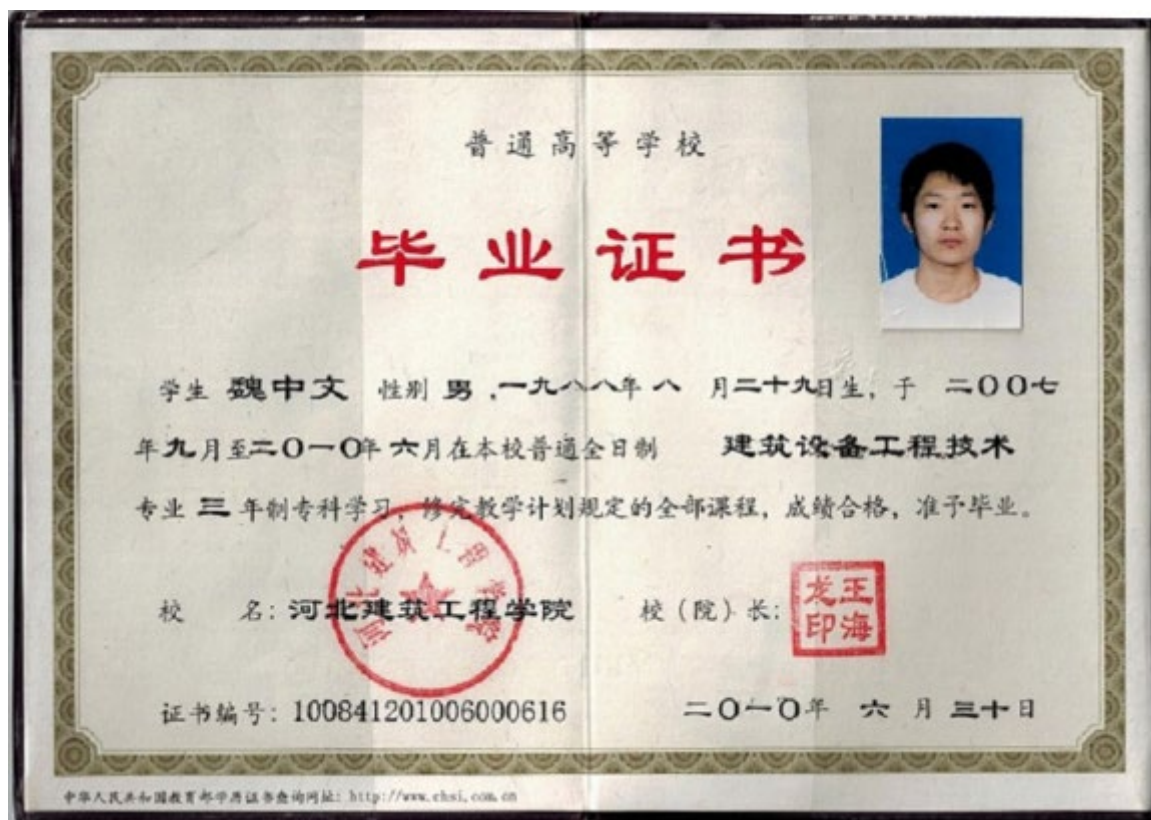 普通高等学校
毕业证书
学生 魏中文 性别 男，一九八八年 八 月二十九日生，于 二〇〇七
年九月至二〇一〇年 六月在本校普通全日制 建筑设备工程技术
专业 三 年制专科学习，修完教学计划规定的全部课程，成绩合格，准予毕业。
河北建筑工程学院
校 名：河北建筑工程学院 校（院）长：
王海龙印
证书编号：100841201006000616 二〇一〇年 六 月 三十日
中华人民共和国教育部学历证书查询网址：http://www.chsi.com.cn